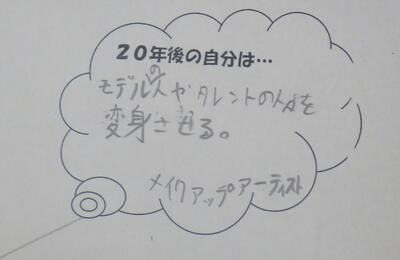 20年後の自分は…
モデルの人やタレントの人を
変身させる。
メイクアップアーティスト